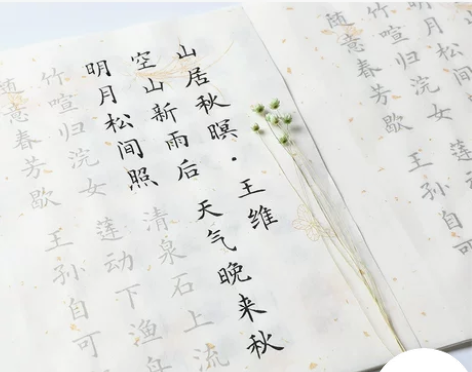 山居秋暝·王维
空山新雨后 天气晚来秋
明月松间照 清泉石上流
竹喧归浣女 莲动下渔舟
随意春芳歇 王孙自可
明月松间
竹喧归浣女
随意春芳歇 王孙自可